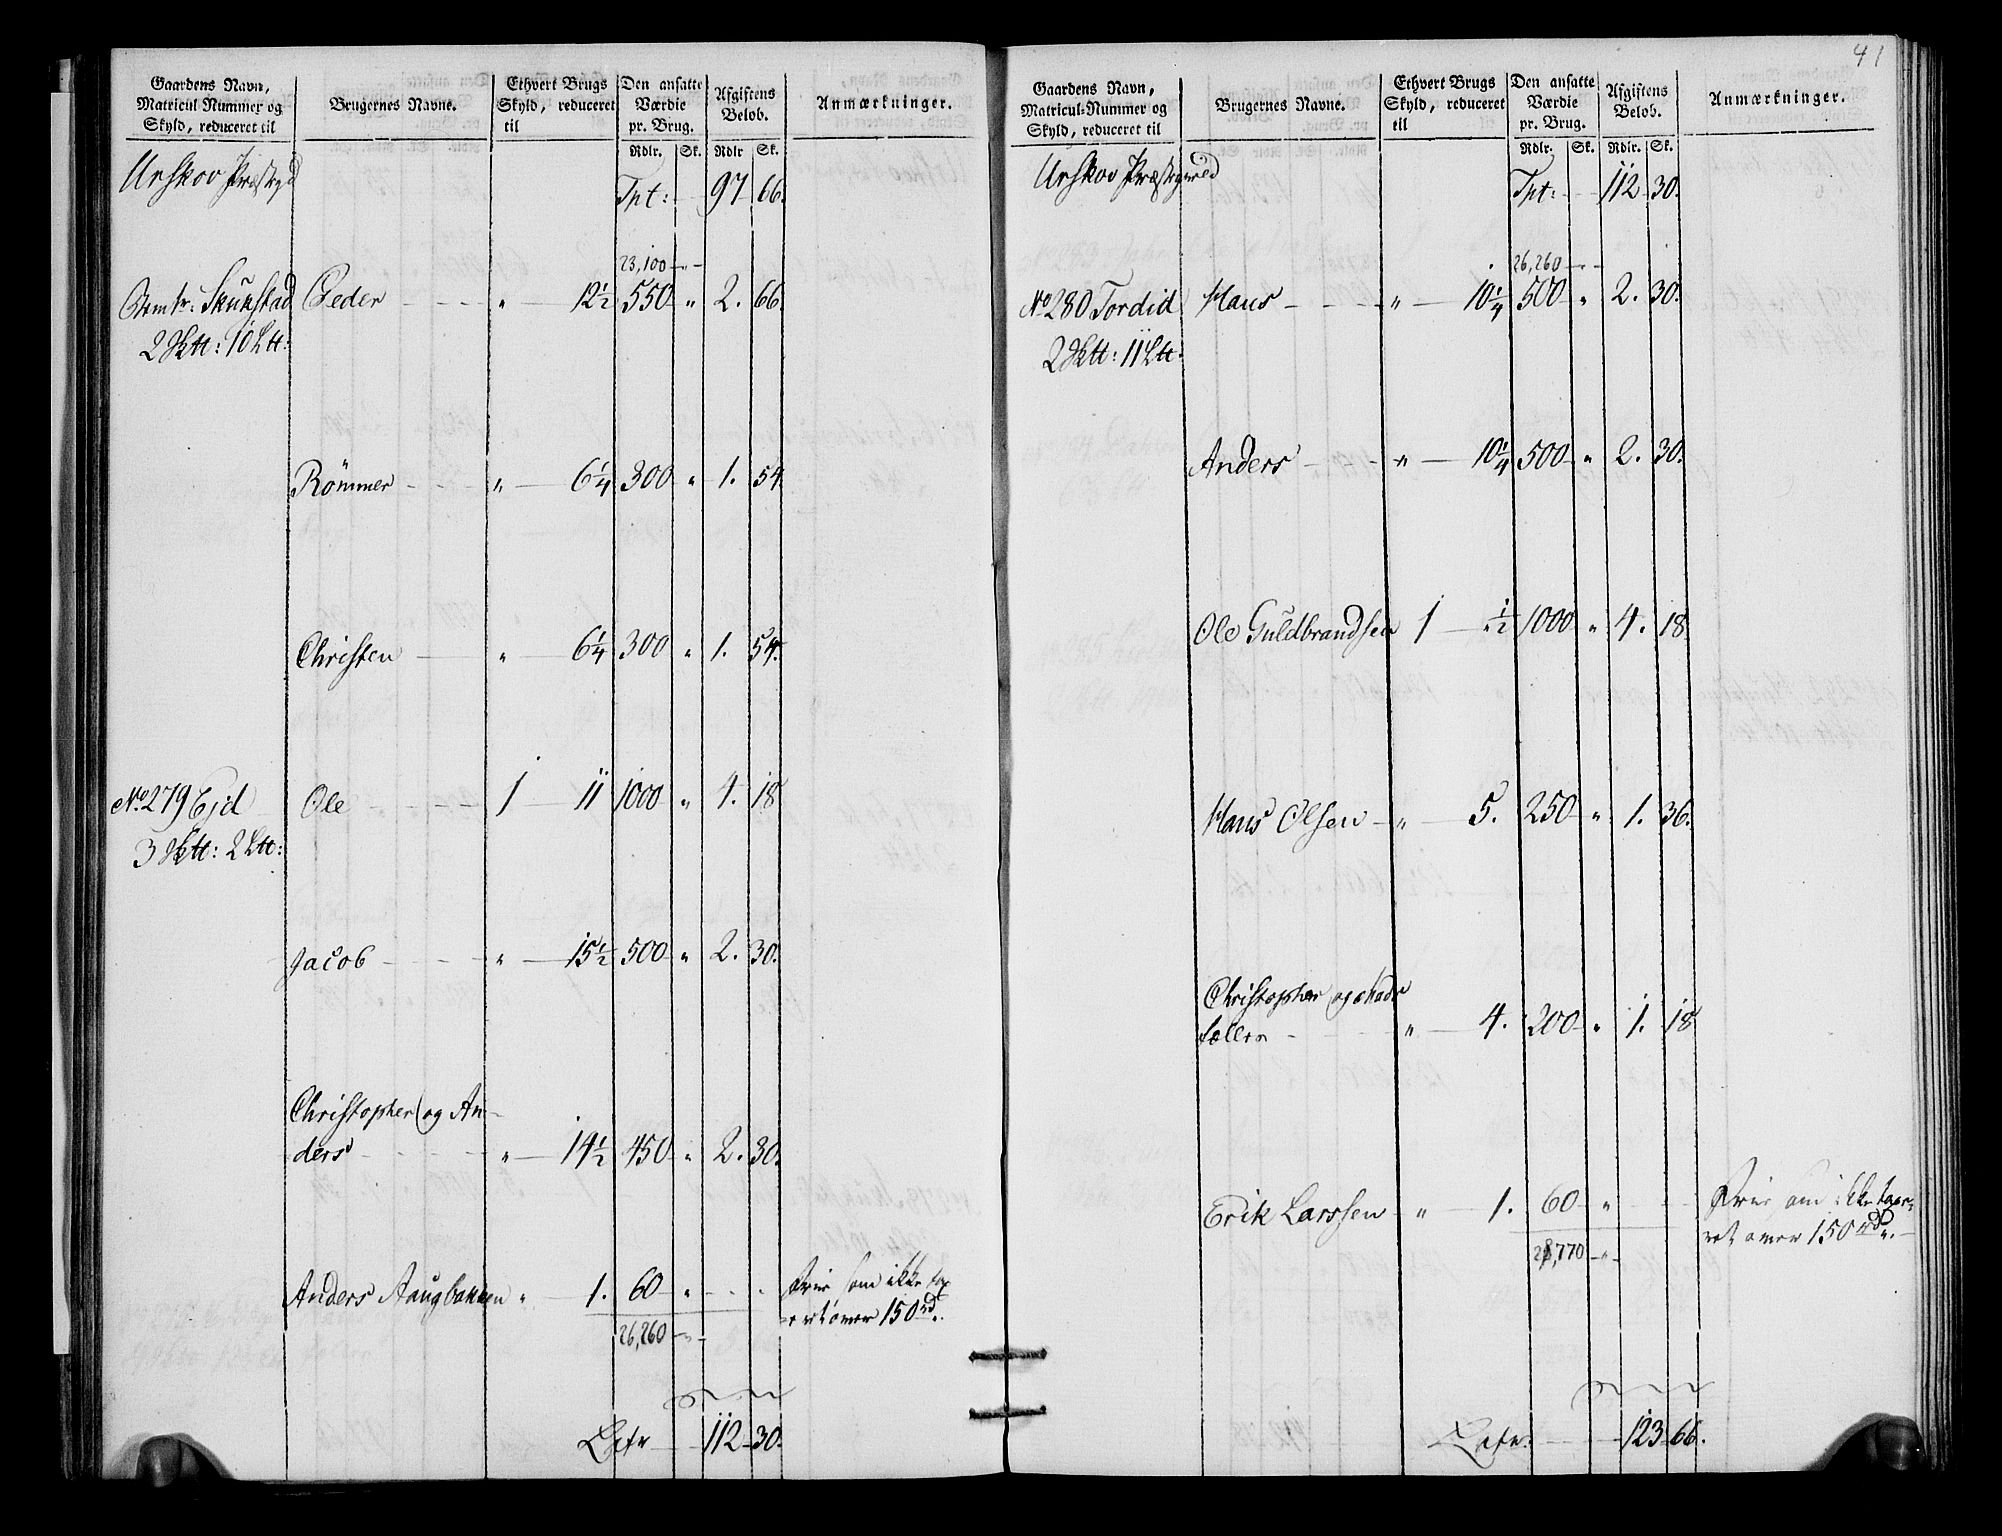 41
Gaardens Navn, Matricul Nummer og Skyld, reduceret til
Brugernes Navne.
Ethvert Brugs Skyld, reduceret til
Den ansatte Værdie pr. Brug.
Afgiftens Beløb.
Anmærkninger.
Rdlr. Sk. Rdlr Sk.
Urskov Præstegd Tpt: 97 66.
23,100 " -
Skukstad Peder " 12½ 550 " 2. 66.
2 Sktt: 10 Ltt:
Rømmer " 6¼ 300 " 1. 54.
Christen " 6¼ 300 " 1. 54.
No 279 Ejd Ole 1 11 1000 " 4. 18
3 Sktt: 2 Ltt:
Jacob " 15½ 500 " 2. 30.
Christopher og An-
ders " 14½ 450 " 2. 30.
Anders Aaugbakken " 1. 60 " Frie som ikke tax
eret over 150 rd.
26,260 " -
Latr 112 30.
Gaardens Navn, Matricul-Nummer og Skyld, reduceret til
Brugernes Navne.
Ethvert Brugs Skyld, reduceret til
Den ansatte Værdie pr. Brug.
Afgiftens Beløb.
Anmærkninger.
Rdlr. Sk. Rdlr. Sk.
Urskov Præstegield Tpt: 112 30.
26,260 " -
No 280 Tordid Hans " 10¼ 500 " 2. 30.
2 Sktt: 11 Ltt:
Anders " 10¼ 500 " 2. 30.
Ole Guldbrandsen 1 " ½ 1000 " 4. 18
Hans Olsen " 5. 250 " 1. 36.
Christopher og
" 4. 200 " 1. 18
Erik Larssen " 1. 60 " Frie om ikke taxe-
ret over 150 rd.
28,770 " -
Latr: 123 66.